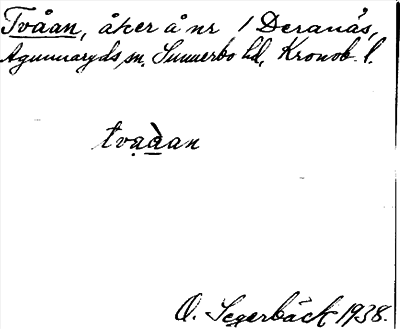 Tvåan, åker å nr 1 Deranäs,
Agunnaryds sn. Sunnerbo hd, Kronob. l.
tvạ̀an
O. Segerbäck 1938.